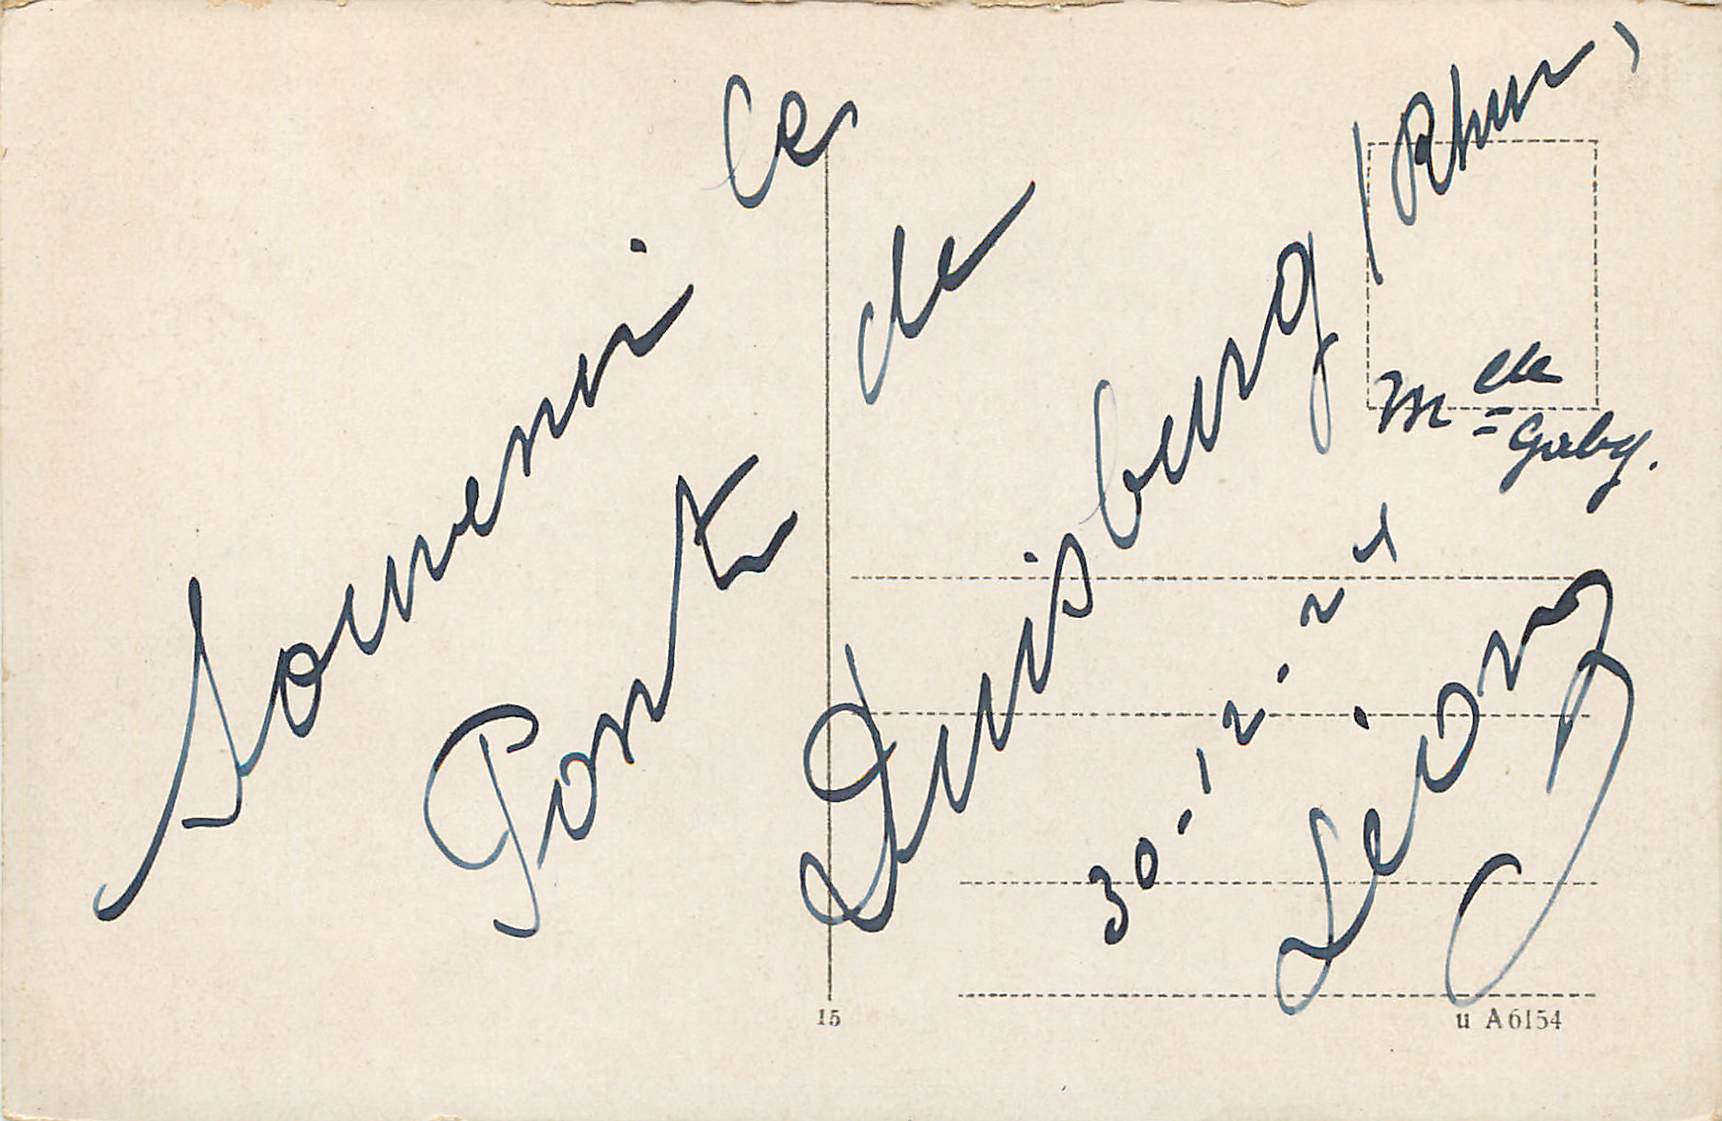 Souvenir le
Pont de
Duisburg / Rhur,
Mlle
Gaby.
30-12-21
Léon
15
u A6154